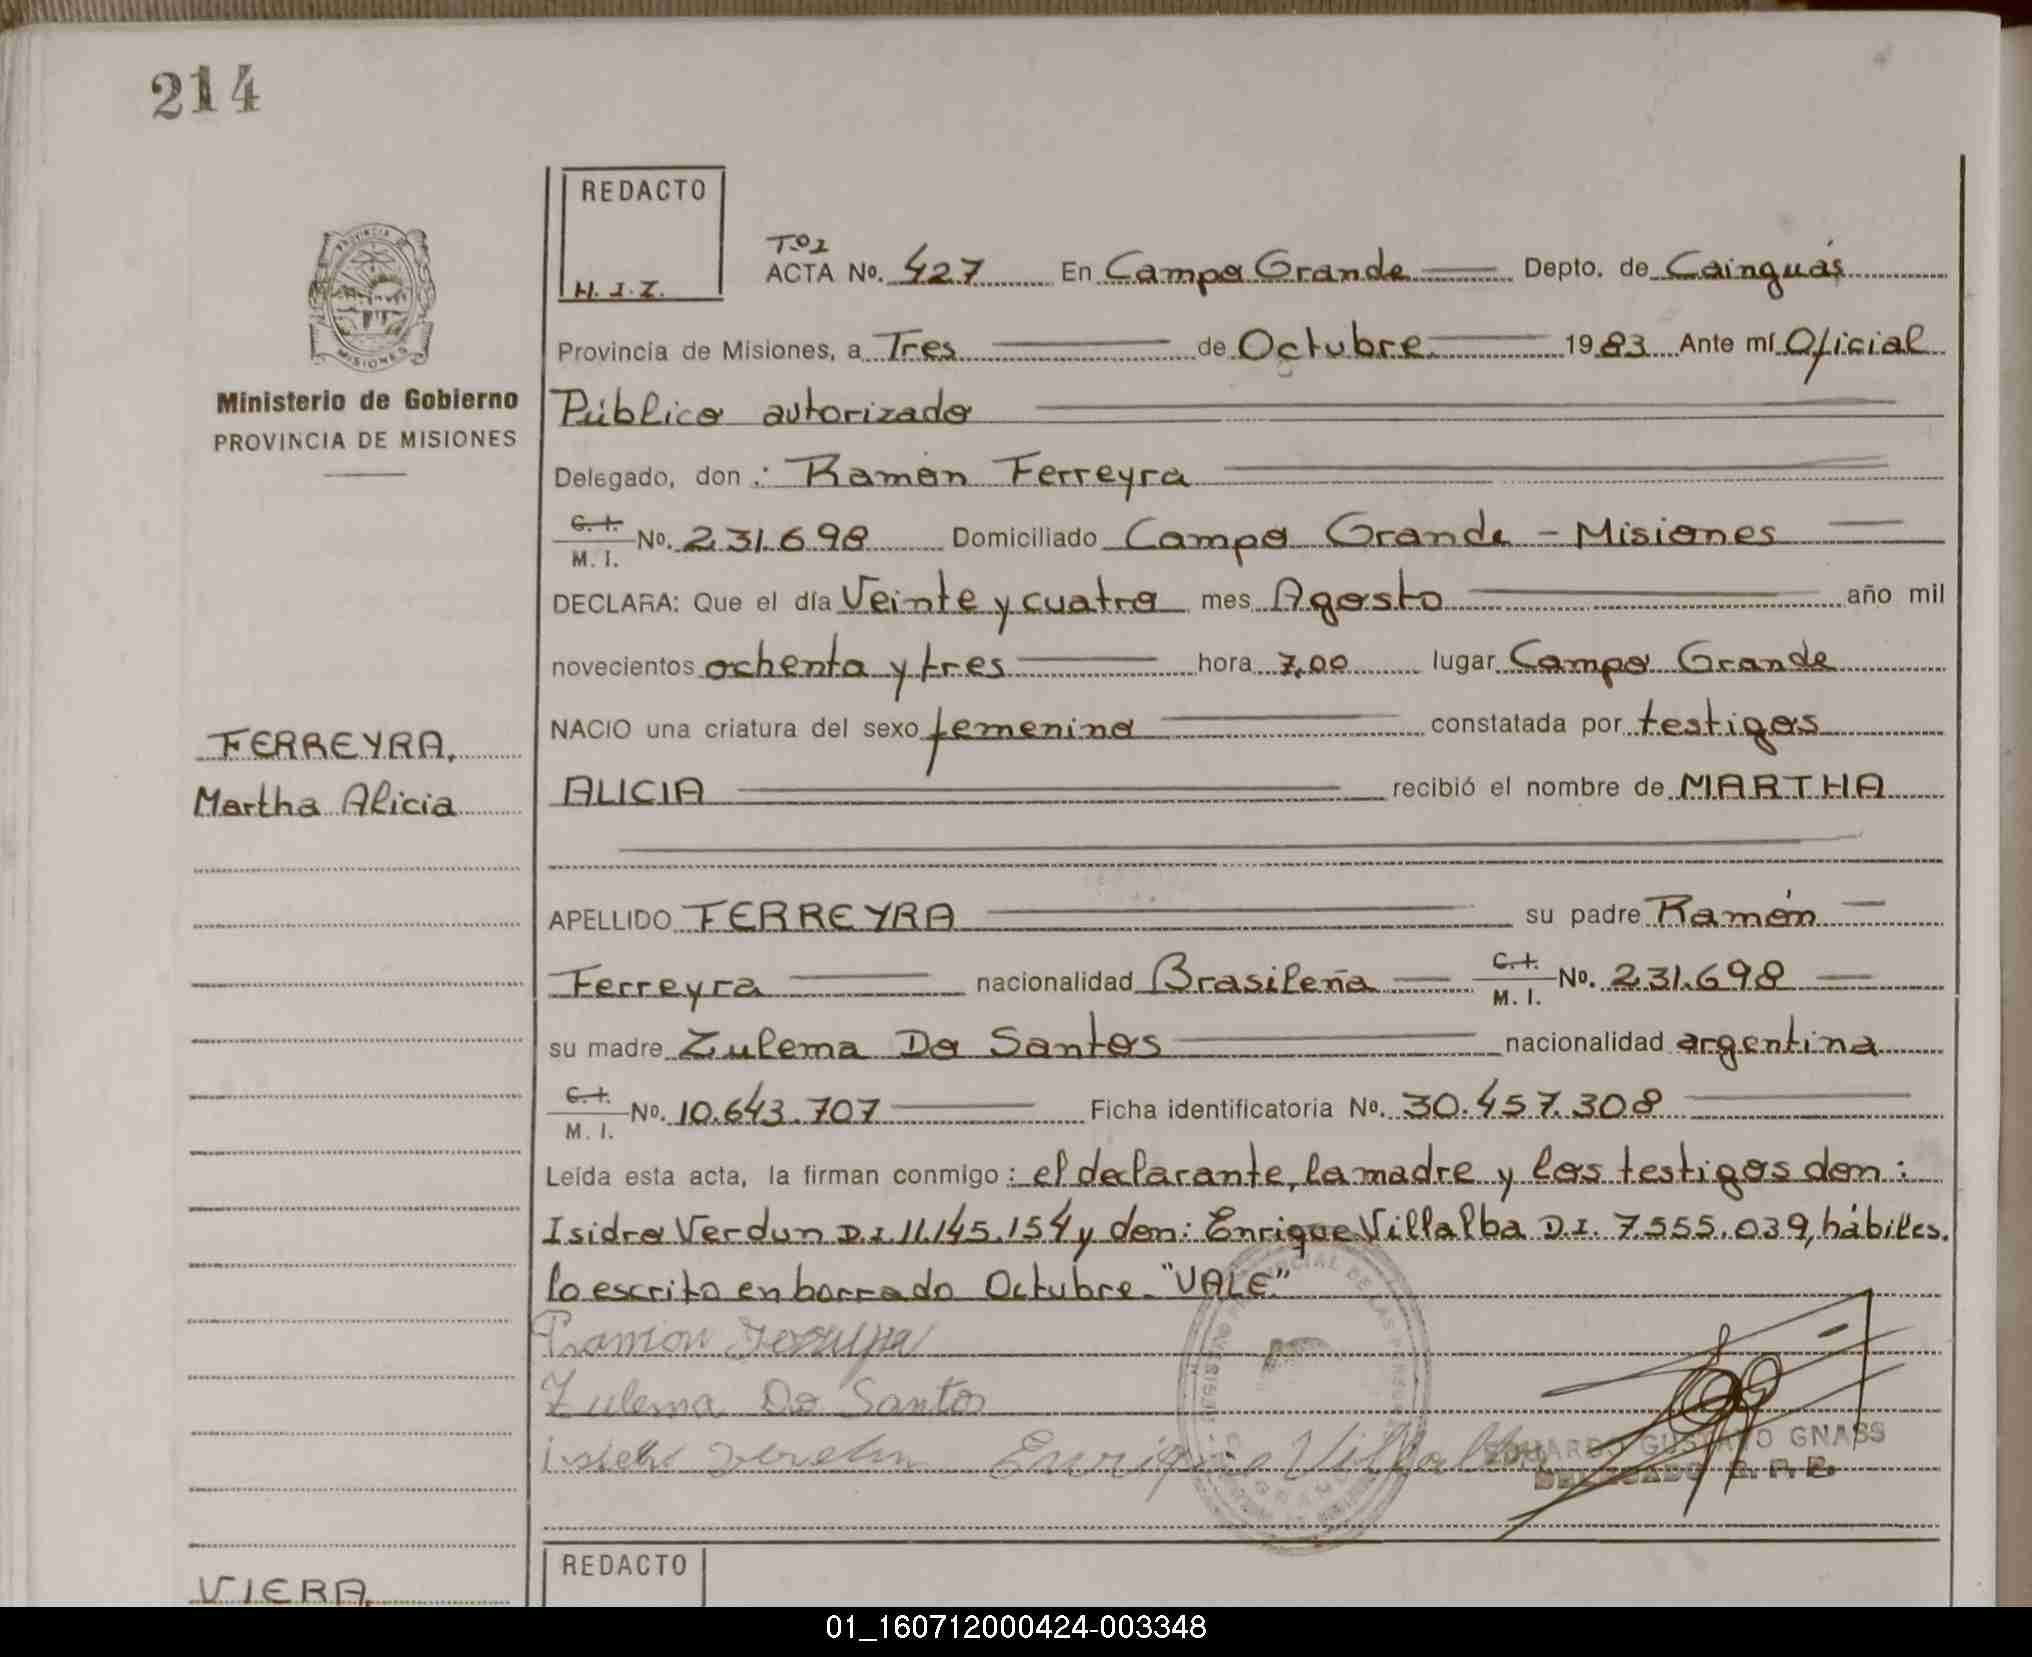 214
REDACTO
H. I. Z.
Tº1
ACTA Nº. 427 En Campo Grande Depto. de Cainguás
Provincia de Misiones, a Tres de Octubre 1983 Ante mí Oficial
Público autorizado
Delegado, don : Ramón Ferreyra
C. I.
M. I. Nº. 231.698 Domiciliado Campo Grande - Misiones
DECLARA: Que el día Veinte y cuatro mes Agosto año mil
novecientos ochenta y tres hora 7,00 lugar Campo Grande
NACIO una criatura del sexo femenino constatada por testigos
ALICIA recibió el nombre de MARTHA
APELLIDO FERREYRA su padre Ramón
Ferreyra nacionalidad Brasileña C. I. M. I. Nº. 231.698
su madre Zulema Do Santos nacionalidad argentina
C. I.
M. I. Nº. 10.643.707 Ficha identificatoria Nº. 30.457.308
Leída esta acta, la firman conmigo : el declarante, la madre y los testigos don :
Isidro Verdun D.I. 11.145.154 y don: Enrique Villalba D.I. 7.555.039, hábiles.
lo escrito en borrado Octubre "VALE"
Ramon Ferreyra
Zulema Do Santos
Enrique Villalba
EDUARDO GUSTAVO GNASS
DELEGADO R. P. P.
PROVINCIA DE
MISIONES
Ministerio de Gobierno
PROVINCIA DE MISIONES
FERREYRA,
Martha Alicia
REDACTO
VIERA,
01_160712000424-003348